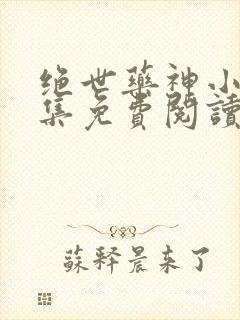 绝世药神小
集免費閱讀
蘇释晨来了